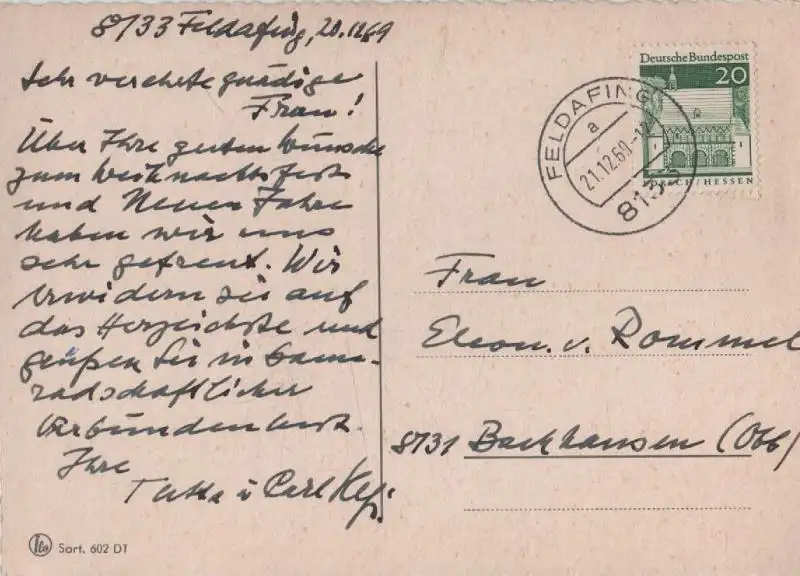 8133 Feldafing, 20.12.69
Sehr verehrte gnädige
Frau!
Über Ihre guten Wünsche
zum Weihnachtsfest
und Neuen Jahre
haben wir uns
sehr gefreut. Wir
erwidern sie auf
das Herzlichste und
grüßen Sie in kame-
radschaftlicher
Verbundenheit.
Ihre
u. Carl
Deutsche Bundespost
20
LORSCH/HESSEN
FELDAFING
a
21.12.69
8133
Frau
Eleon. v. Rommel
8131 Bachhausen (Obb)
Sort. 602 DT